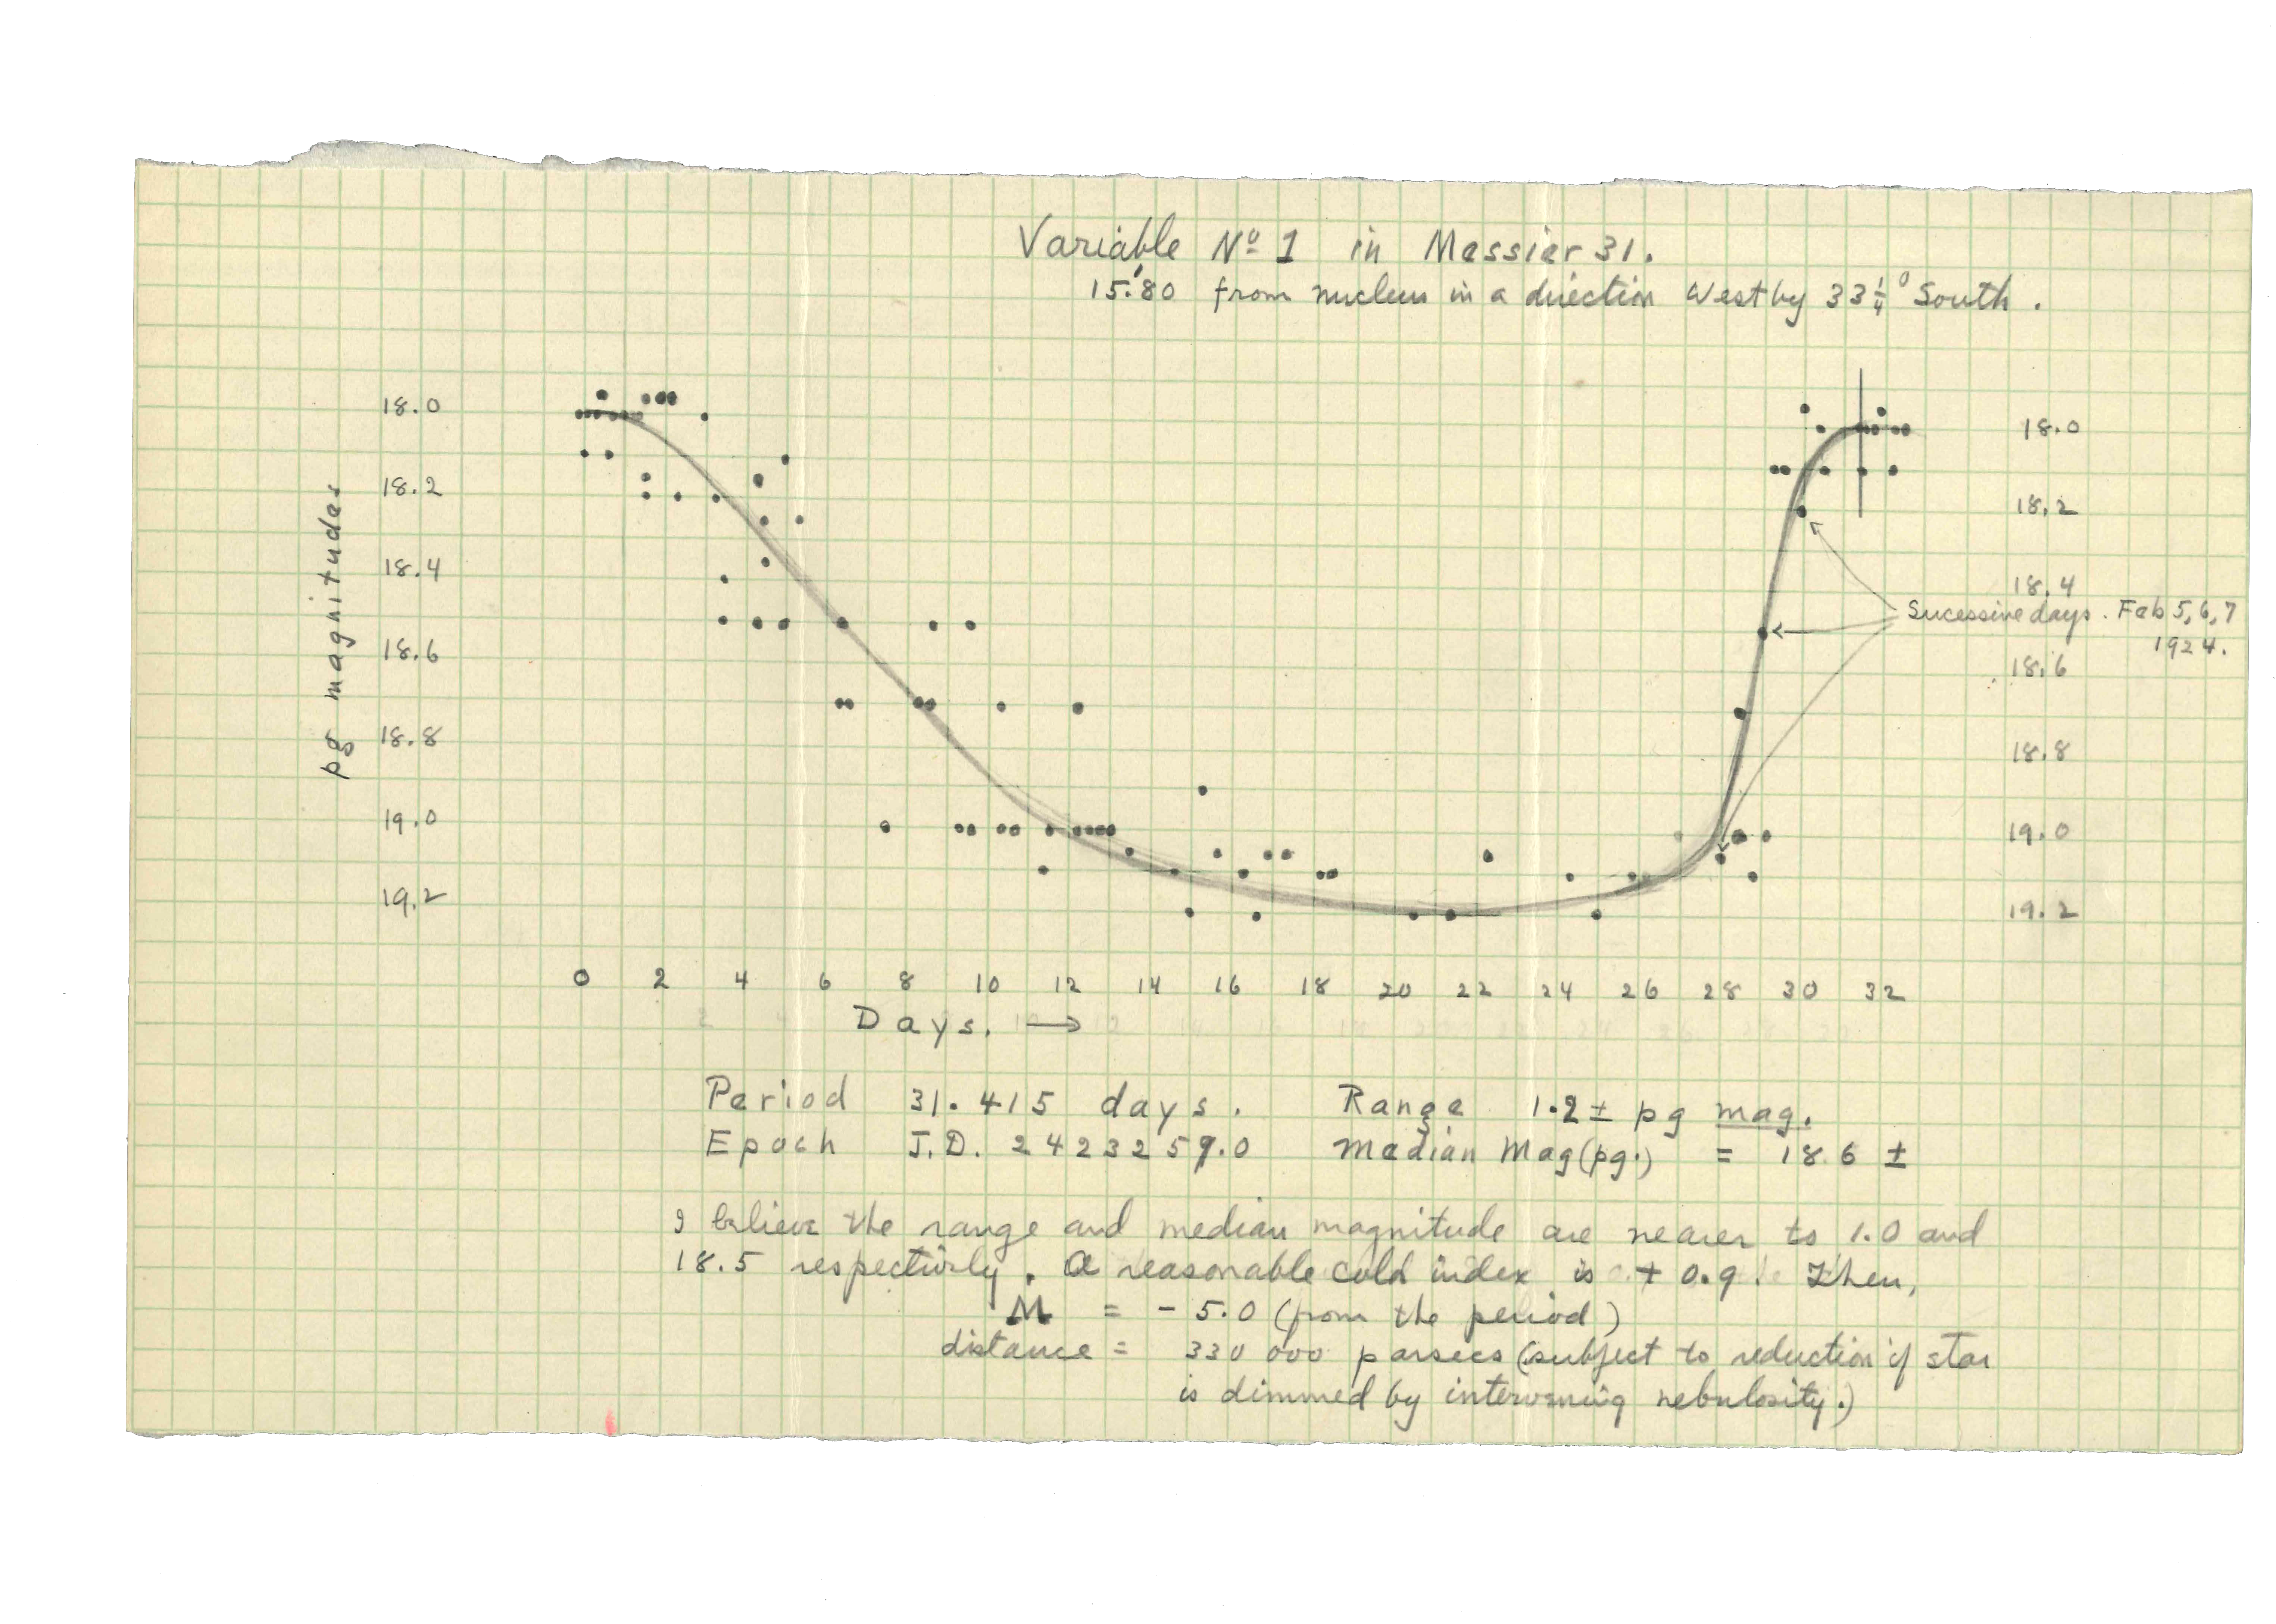 Variable Nº 1 in Messier 31.
15.'80 from nucleus in a direction West by 33 1/4° South.
18.0
18.2
18.4
18.6
18.8
19.0
19.2
pg magnitudes
18.0
18.2
18.4
18.6
18.8
19.0
19.2
Sucessive days. Feb 5, 6, 7
1924.
0 2 4 6 8 10 12 14 16 18 20 22 24 26 28 30 32
Days. →
Period 31.415 days. Range 1.2 ± pg mag.
Epoch J.D. 2423259.0 Median Mag (pg.) = 18.6 ±
I believe the range and median magnitude are nearer to 1.0 and
18.5 respectivly. A reasonable color index is + 0.9. Then,
M = - 5.0 (from the period)
distance = 330 000 parsecs (subject to reduction if star
is dimmed by intervening nebulosity.)